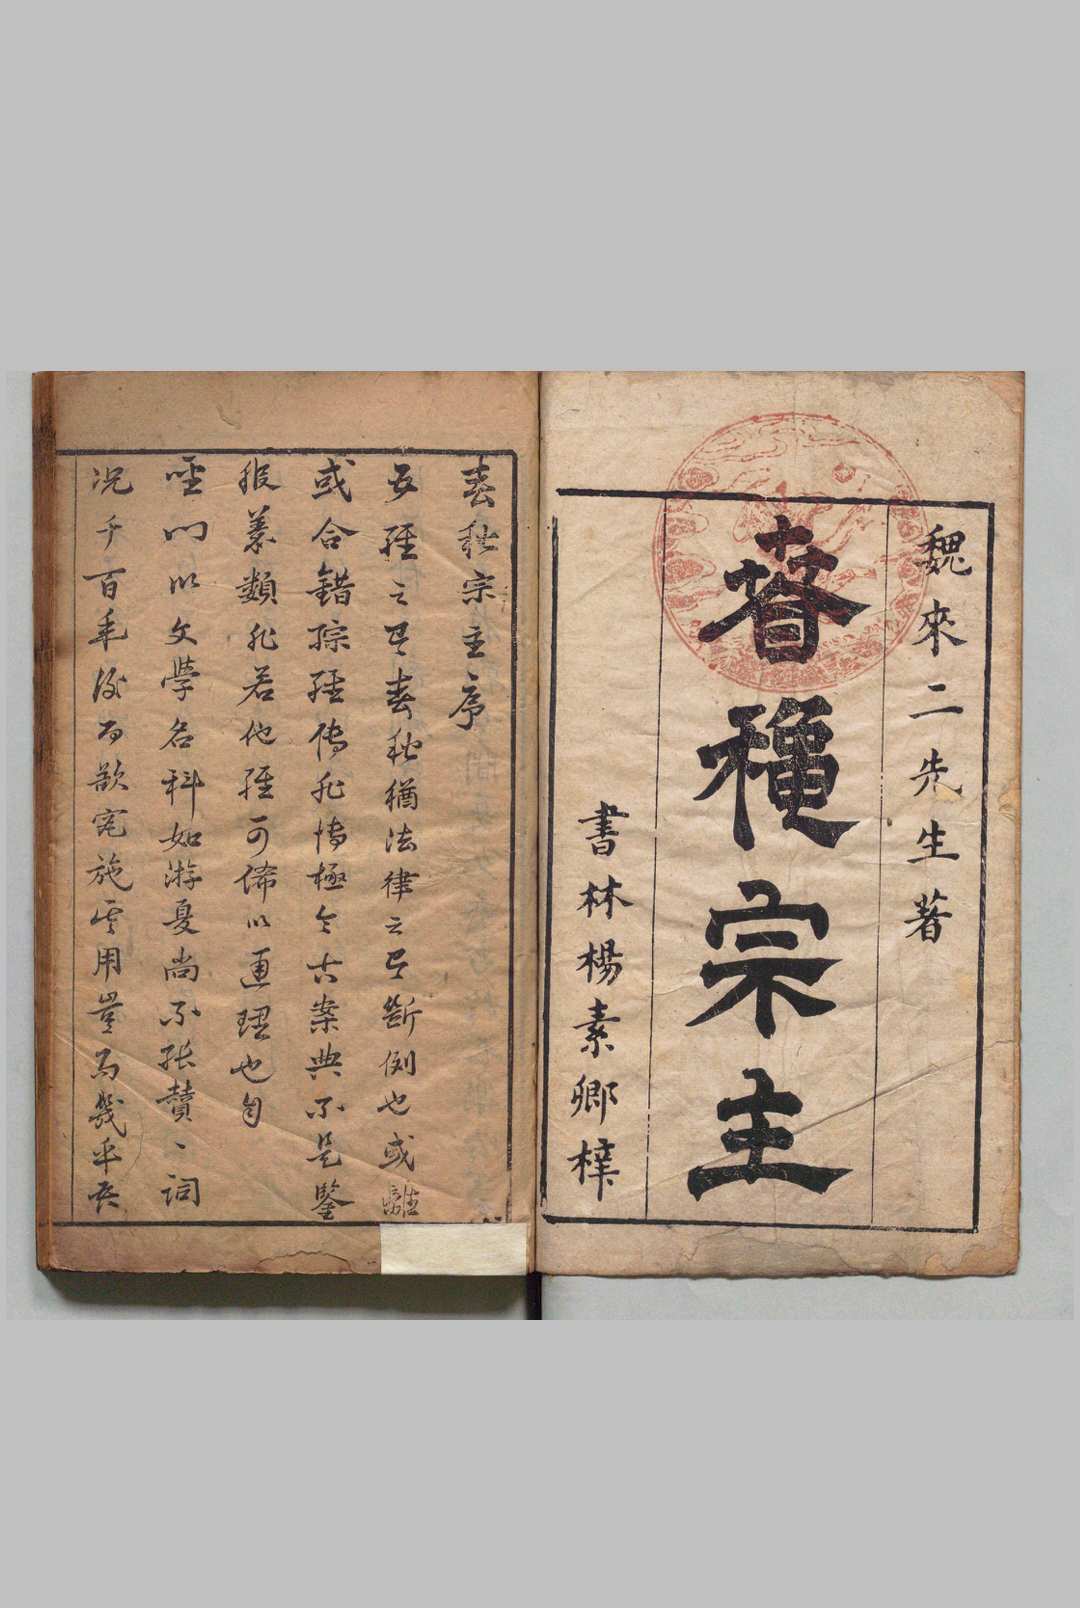 魏來二先生著
春穐宗主
書林楊素卿梓
春秋宗主序
五經之有春秋猶法律之有斷例也或離
或合錯綜經傳非博極今古案典不足鑒
類非若他經可以通理也自
聖門以文學名科如游夏尚不能贊一詞
況千百年後而欲施其用豈不幾乎